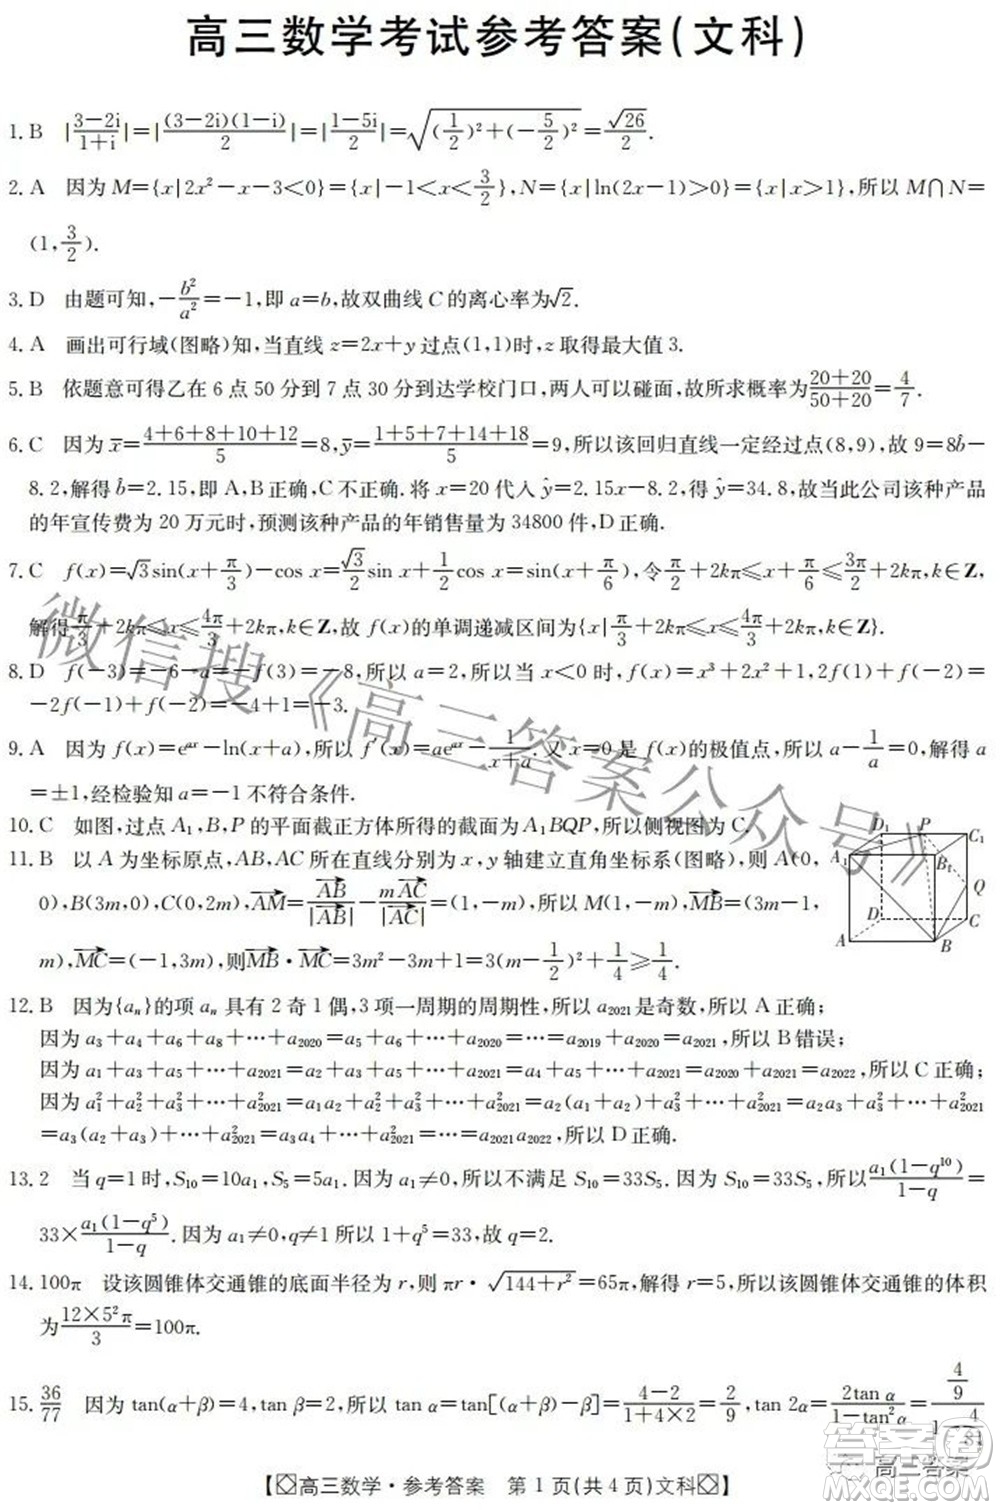 高三数学考试参考答案(文科)
1. B |(3-2i)/(1+i)|=|(3-2i)(1-i)/2|=|(1-5i)/2|=√((1/2)²+(-5/2)²)=√26/2.
2. A 因为 M={x|2x²-x-3<0}={x|-1<x<3/2},N={x|ln(2x-1)>0}={x|x>1},所以 M∩N=
(1,3/2).
3. D 由题可知,-b²/a²=-1,即 a=b,故双曲线 C 的离心率为√2.
4. A 画出可行域(图略)知,当直线 z=2x+y 过点(1,1)时,z 取得最大值 3.
5. B 依题意可得乙在 6 点 50 分到 7 点 30 分到达学校门口,两人可以碰面,故所求概率为(20+20)/(50+20)=4/7.
6. C 因为 x̄=(4+6+8+10+12)/5=8,ȳ=(1+5+7+14+18)/5=9,所以该回归直线一定经过点(8,9),故 9=8b̂-
8.2,解得 b̂=2.15,即 A,B 正确,C 不正确.将 x=20 代入 ŷ=2.15x-8.2,得 ŷ=34.8,故当此公司该种产品
的年宣传费为 20 万元时,预测该种产品的年销售量为 34800 件,D 正确.
7. C f(x)=√3sin(x+π/3)-cos x=√3/2 sin x+1/2 cos x=sin(x+π/6),令π/2+2kπ≤x+π/6≤3π/2+2kπ,k∈Z,
解得π/3+2kπ≤x≤4π/3+2kπ,k∈Z,故 f(x)的单调递减区间为{x|π/3+2kπ≤x≤4π/3+2kπ,k∈Z}.
8. D f(-3)=-6-a=-f(3)=-8,所以 a=2,所以当 x<0 时,f(x)=x³+2x+2x²,2f(1)+f(-2)=
-2f(-1)+f(-2)=-4+1=-3.
9. A 因为 f(x)=e^{ax}-ln(x+a),所以 f′(x)=ae^{ax}-1/(x+a).又 x=0 是 f(x)的极值点,所以 a-1/a=0,解得 a
=±1,经检验知 a=-1 不符合条件.
10. C 如图,过点 A₁,B,P 的平面截正方体所得的截面为 A₁BQP,所以侧视图为 C.
D₁ P C₁
A₁ B₁
Q
D C
A B
11. B 以 A 为坐标原点,AB,AC 所在直线分别为 x,y 轴建立直角坐标系(图略),则 A(0,
0),B(3m,0),C(0,2m),AM→=AB→/|AB→|-mAC→/|AC→|=(1,-m),所以 M(1,-m),MB→=(3m-1,
m),MC→=(-1,3m),则MB→·MC→=3m²-3m+1=3(m-1/2)²+1/4≥1/4.
12. B 因为{aₙ}的项 aₙ 具有 2 奇 1 偶,3 项一周期的周期性,所以 a₂₀₂₁是奇数,所以 A 正确;
因为 a₃+a₄+a₆+a₈+⋯+a₂₀₂₀=a₅+a₆+a₈+⋯+a₂₀₂₀=⋯=a₂₀₁₉+a₂₀₂₀=a₂₀₂₁,所以 B 错误;
因为 a₁+a₃+a₅+⋯+a₂₀₂₁=a₂+a₃+a₅+⋯+a₂₀₂₁=a₄+a₅+⋯+a₂₀₂₁=a₂₀₂₀+a₂₀₂₁=a₂₀₂₂,所以 C 正确;
因为 a₁²+a₂²+a₃²+⋯+a₂₀₂₁²=a₁a₂+a₂²+a₃²+⋯+a₂₀₂₁²=a₂(a₁+a₂)+a₃²+⋯+a₂₀₂₁²=a₂a₃+a₃²+⋯+a₂₀₂₁²
=a₃(a₂+a₃)+⋯+a₂₀₂₁²=a₃a₄+⋯+a₂₀₂₁²=⋯=a₂₀₂₁a₂₀₂₂,所以 D 正确.
13. 2 当 q=1 时,S₁₀=10a₁,S₅=5a₁.因为 a₁≠0,所以不满足 S₁₀=33S₅.因为 S₁₀=33S₅,所以a₁(1-q¹⁰)/(1-q)=
33×a₁(1-q⁵)/(1-q).因为 a₁≠0,q≠1 所以 1+q⁵=33,故 q=2.
14. 100π 设该圆锥体交通锥的底面半径为 r,则 πr·√(144+r²)=65π,解得 r=5,所以该圆锥体交通锥的体积
为(12×5²π)/3=100π.
15. 36/77 因为 tan(α+β)=4,tan β=2,所以 tan α=tan[(α+β)-β]=(4-2)/(1+4×2)=2/9,tan 2α=2tan α/(1-tan²α)=(4/9)/(1-4/81)
【◇高三数学·参考答案 第 1 页(共 4 页)文科◇】
微信搜《高三答案公众号》
答案圈
高三答案